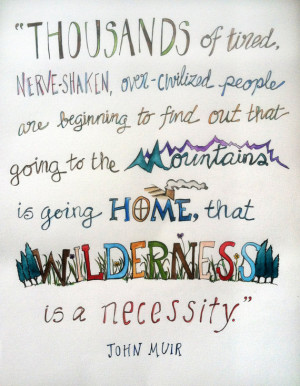 "THOUSANDS of tired,
NERVE-SHAKEN, over-civilized people
are beginning to find out that
going to the Mountains
is going HOME, that
WILDERNESS
is a necessity."
JOHN MUIR